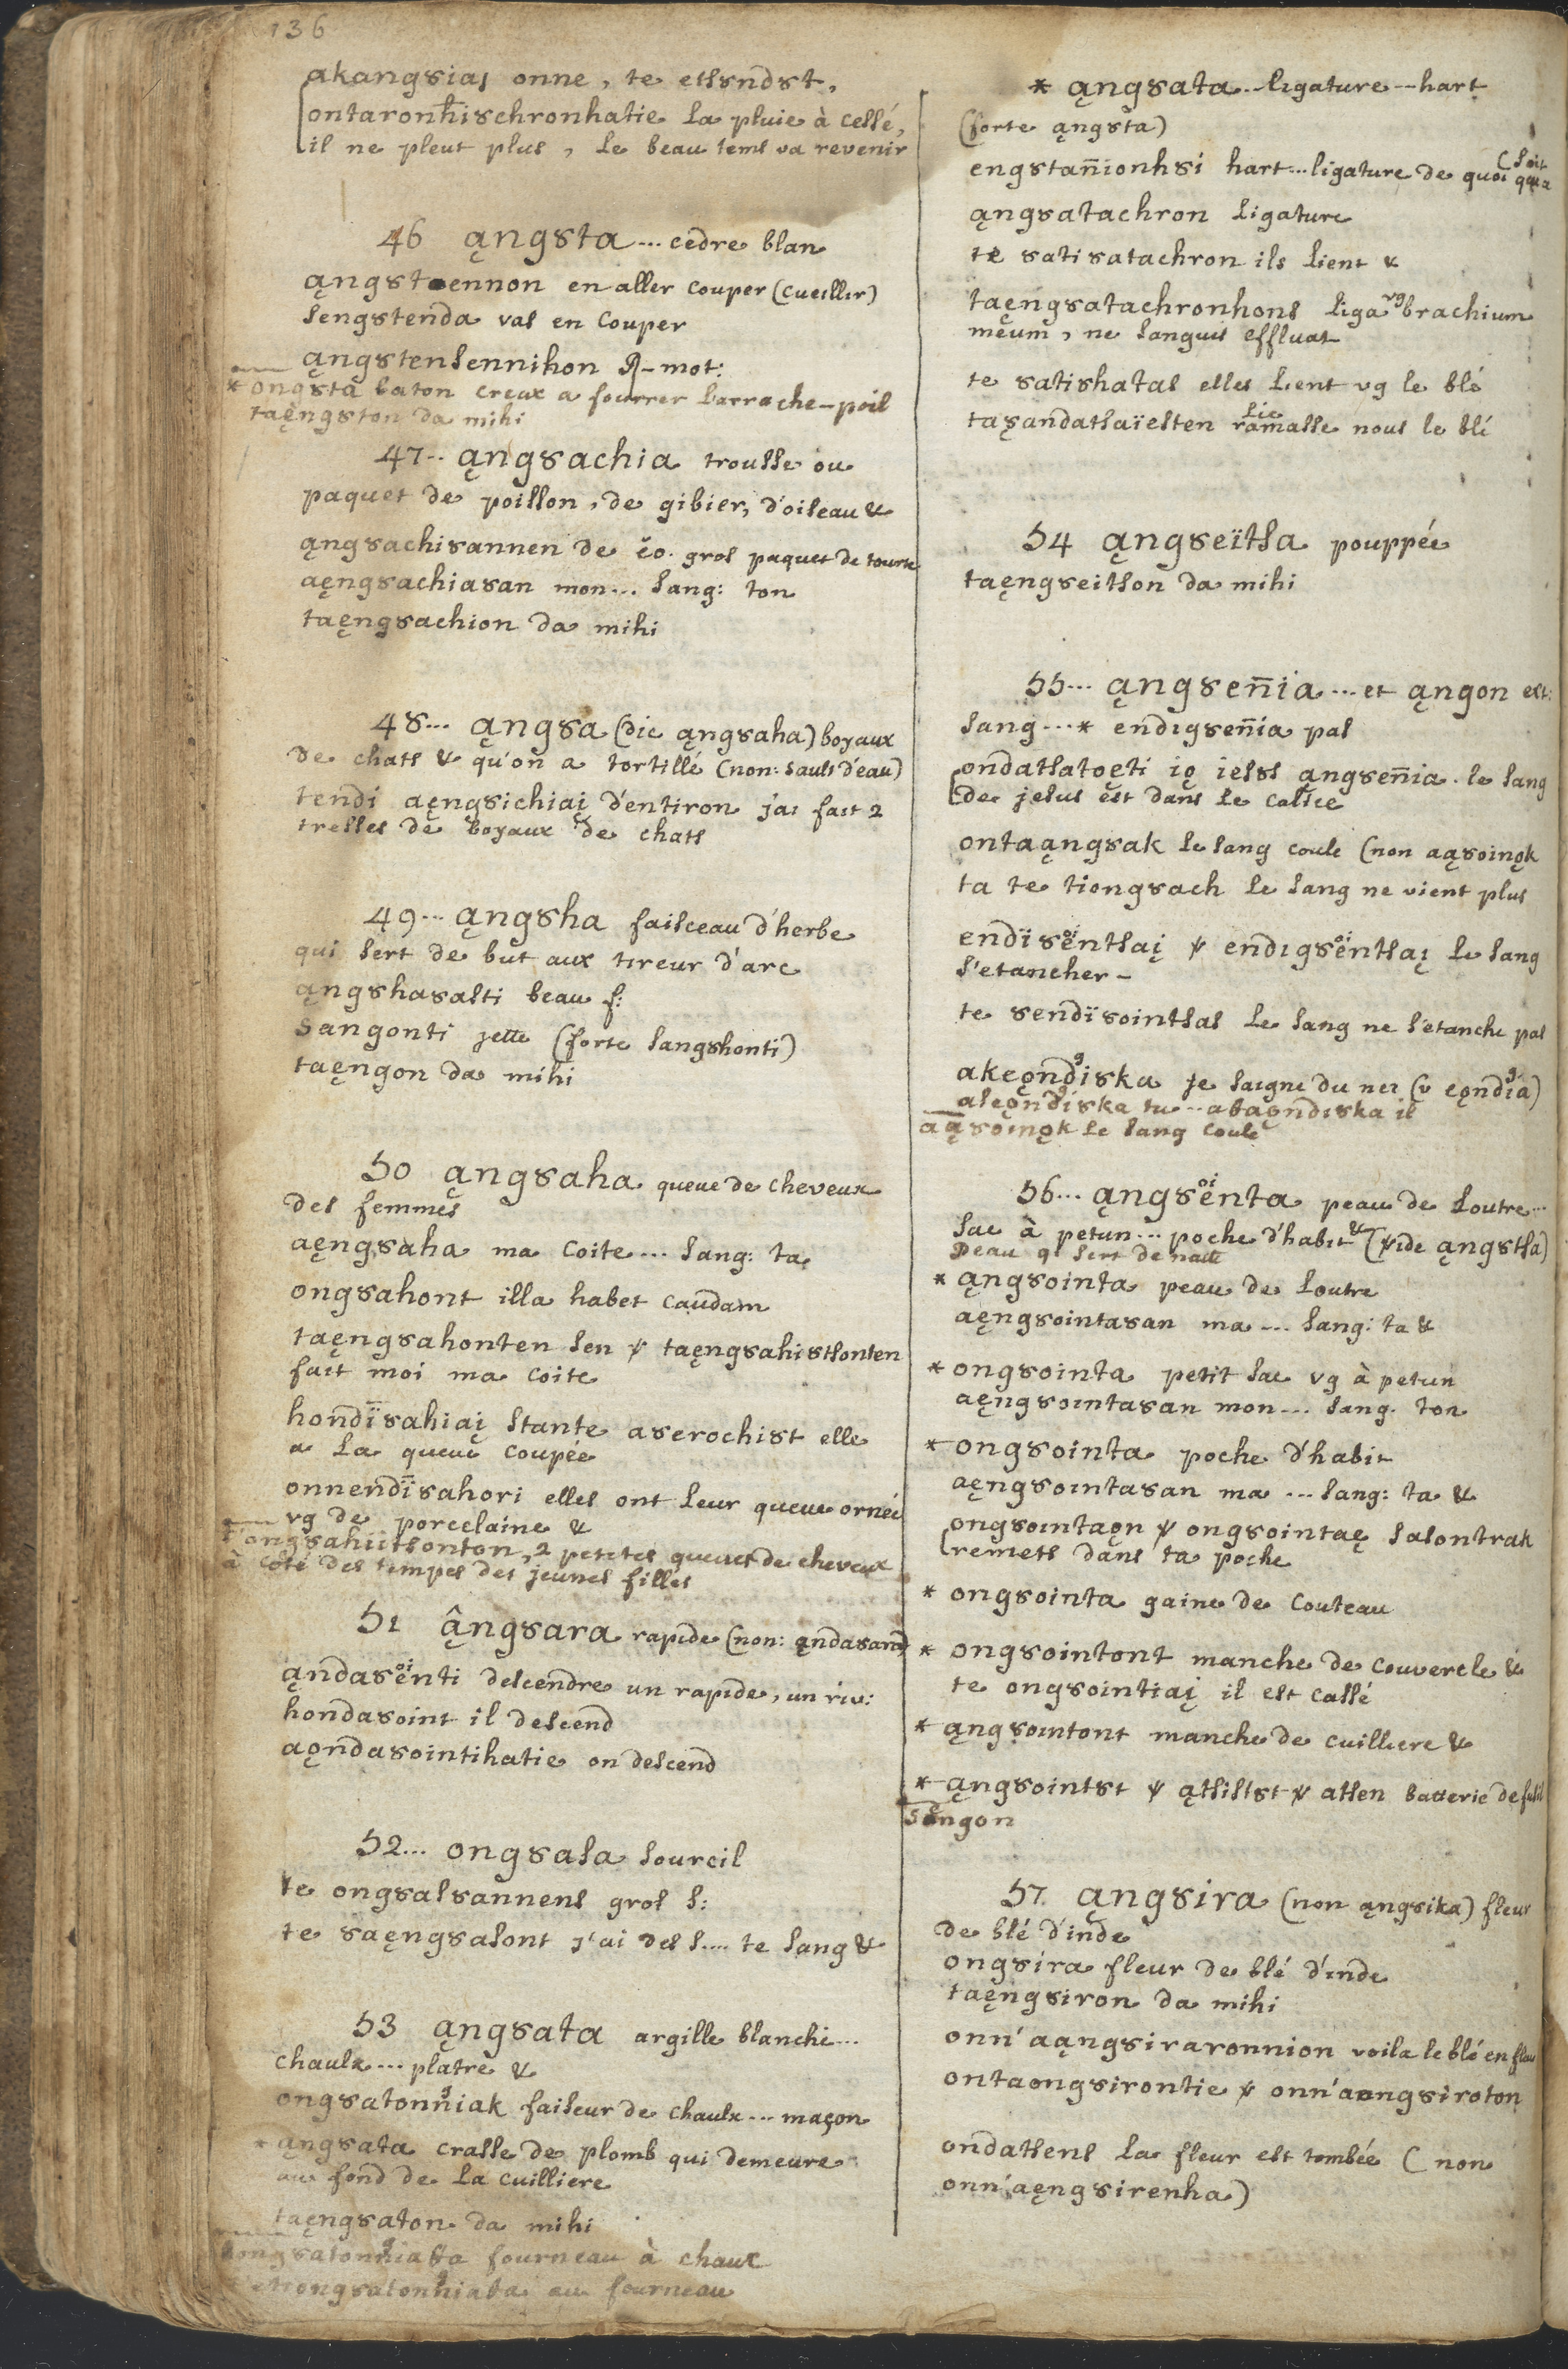 136
akang8ias onne, te etsȣndȣt,
ontaronhischronhatie la pluie à cessé,
il ne pleut plus, le beau tems va revenir
46 ąngȣta... cedre blan
ąngȣtoennon en aller couper (cueillir)
sengȣtenda vas en couper
ąngȣtensennihon R-mot:
* ongȣta baton creux a fourrer l'arrache-poil
taęngȣton da mihi
47.. ąngȣachia trousse ou
paquet de poisson, de gibier, d'oiseau &
ąngȣachiȣannen de eo. gros paquet de tourte
aęngȣachiaȣan mon... sang: ton
taęngȣachion da mihi
48... ąngȣa (dic ąngȣaha) boyaux
de chats & qu'on a tortillé (non: sault d'eau)
tendi aęngȣichiaį d'entiron j'ai fait 2
tresses de boyaux de chats
49... ąngȣha faisceau d'herbe
qui sert de but aux tireur d'arc
ąngȣhaȣasti beau f:
sangonti jette (forte sangȣhonti)
taęngon da mihi
50 ąngȣaha queue de cheveux
des femmes
aęngȣaha ma coite... sang: ta
ongȣahont illa habet caudam
taęngȣahonten sen ѱ taęngȣahistsonten
fait moi ma coite
hondïȣahiaį stante aȣerochiȣt elle
a la queue coupée
onnendïȣahori elles ont leur queue ornée
vg de porcelaine &
ongȣahiitsonton, 2 petites queues de cheveux
à coté des tempes des jeunes filles
51 ângȣara rapide (non: ąndaȣand)
ąndaȣointi descendre un rapide, un riv:
hondaȣoint il descend
aǫndaȣointihatie on descend
52... ongȣasa sourcil
te ongȣasȣannens gros s:
te ȣaęngȣasont j'ai des s.... te sang &
53 ąngȣata argille blanche...
chaulx... platre &
ongȣatonniak faiseur de chaulx... maçon
* ąngȣata crasse de plomb qui demeure
au fond de la cuilliere
taęngȣaton da mihi
fourneau à chaux
au fourneau
* ąngȣata... ligature -- hart
(forte ąngȣta)
engȣtannionhȣi hart... ligature de quoi que ce soit
ąngȣatachron ligature
te ȣatiȣatachron ils lient &
taęngȣatachronhons liga vg brachium
meum, ne sanguis effluat
te ȣatiȣhatas elles lient vg le blé
taȣandatsaïesten lie ramasse nous le blé
54 ąngȣeïtsa pouppée
taęngȣeitson da mihi
55... ąngȣennia... et ąngon ext:
sang...* endıgȣennia pas
ondatsatoęti iǫ iesȣs ąngȣennia. le sang
de jesus est dans le calice
ontaąngȣak le sang coule (non aąȣoinǫk
ta te tiongȣach le sang ne vient plus
endïȣointsaį ѱ endıgȣointsaį le sang
s'etancher -
te ȣendïȣointsas le sang ne s'etanche pas
akeǫndiska je saigne du nez (v eǫndia)
aseǫndiska tu .. ahaǫndiska il
aąȣoinǫk le sang coule
56... ąngȣointa peau de loutre...
sac à petun... poche d'habit & (vide ąngȣtsa)
peau qi sert de natte
* ąngȣointa peau de loutre
aęngȣointaȣan ma ... sang: ta &
* ongȣointa petit sac vg à petun
aęngȣointaȣan mon... sang. ton
* ongȣointa poche d'habit
aęngȣointaȣan ma ... sang: ta &
ongȣointaǫn ѱ ongȣointaę sasontrak
remets dans ta poche
* ongȣointa gaine de couteau
* ongȣointont manche de couvercle &
te ongȣointiaį il est cassé
* ąngȣointont manche de cuilliere &
* ąngȣointȣt ѱ ątsistȣt ѱ atsen batterie de fusil
sengon
57. ąngȣira (non ąngȣika) fleur
de blé d'inde
ongȣira fleur de blé d'inde
taęngȣiron da mihi
onn'aąngȣiraronnion voila le blé en fleur
ontaongȣirontie ѱ onn'aongȣiroton
ondatsens la fleur est tombée (non
onn'aęngȣirenha)